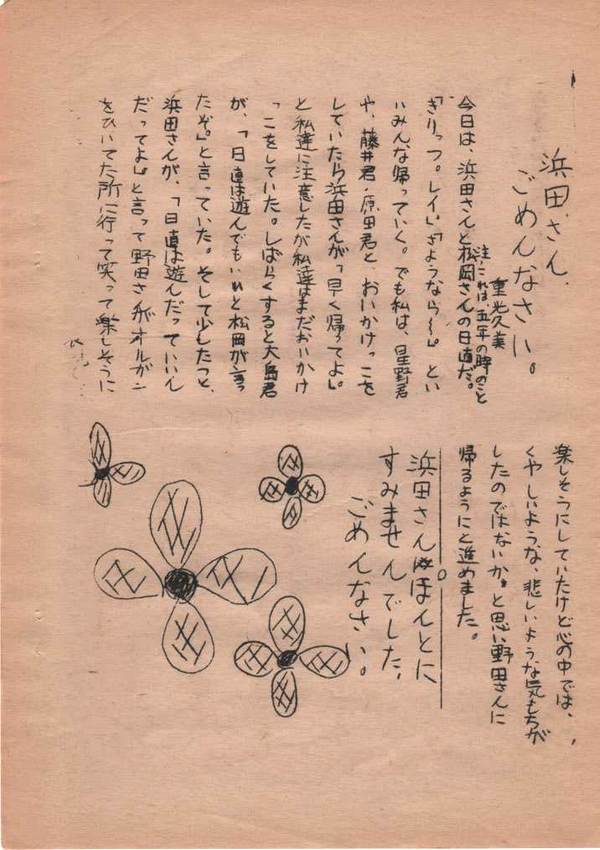 浜田さん、
ごめんなさい。
重光久美
注:これは、五年の時のこと
今日は、浜田さんと松岡さんの日直だ。
「きりっつ。レイ」「さようなら〜」とい
いみんな帰っていく。でも私は、星野君
や、藤井君・原田君と、おいかけっこを
していたら浜田さんが「早く帰ってよ」
と私達に注意したが私達はまだおいかけ
っこをしていた。しばらくすると大島君
が、「日直は遊んでもいいと松岡が言っ
たぞ。」と言っていた。そして少したつと、
浜田さんが、「日直は遊んだっていいん
だってよ」と言って野田さんがオルガン
をひいてた所に行って笑って楽しそうに
楽しそうにしていたけど心の中では、
くやしいような、悲しいような気もちが
したのではないか。と思い野田さんに
帰るようにと進めました。
浜田さん。ほんとに
すみませんでした、
ごめんなさい。